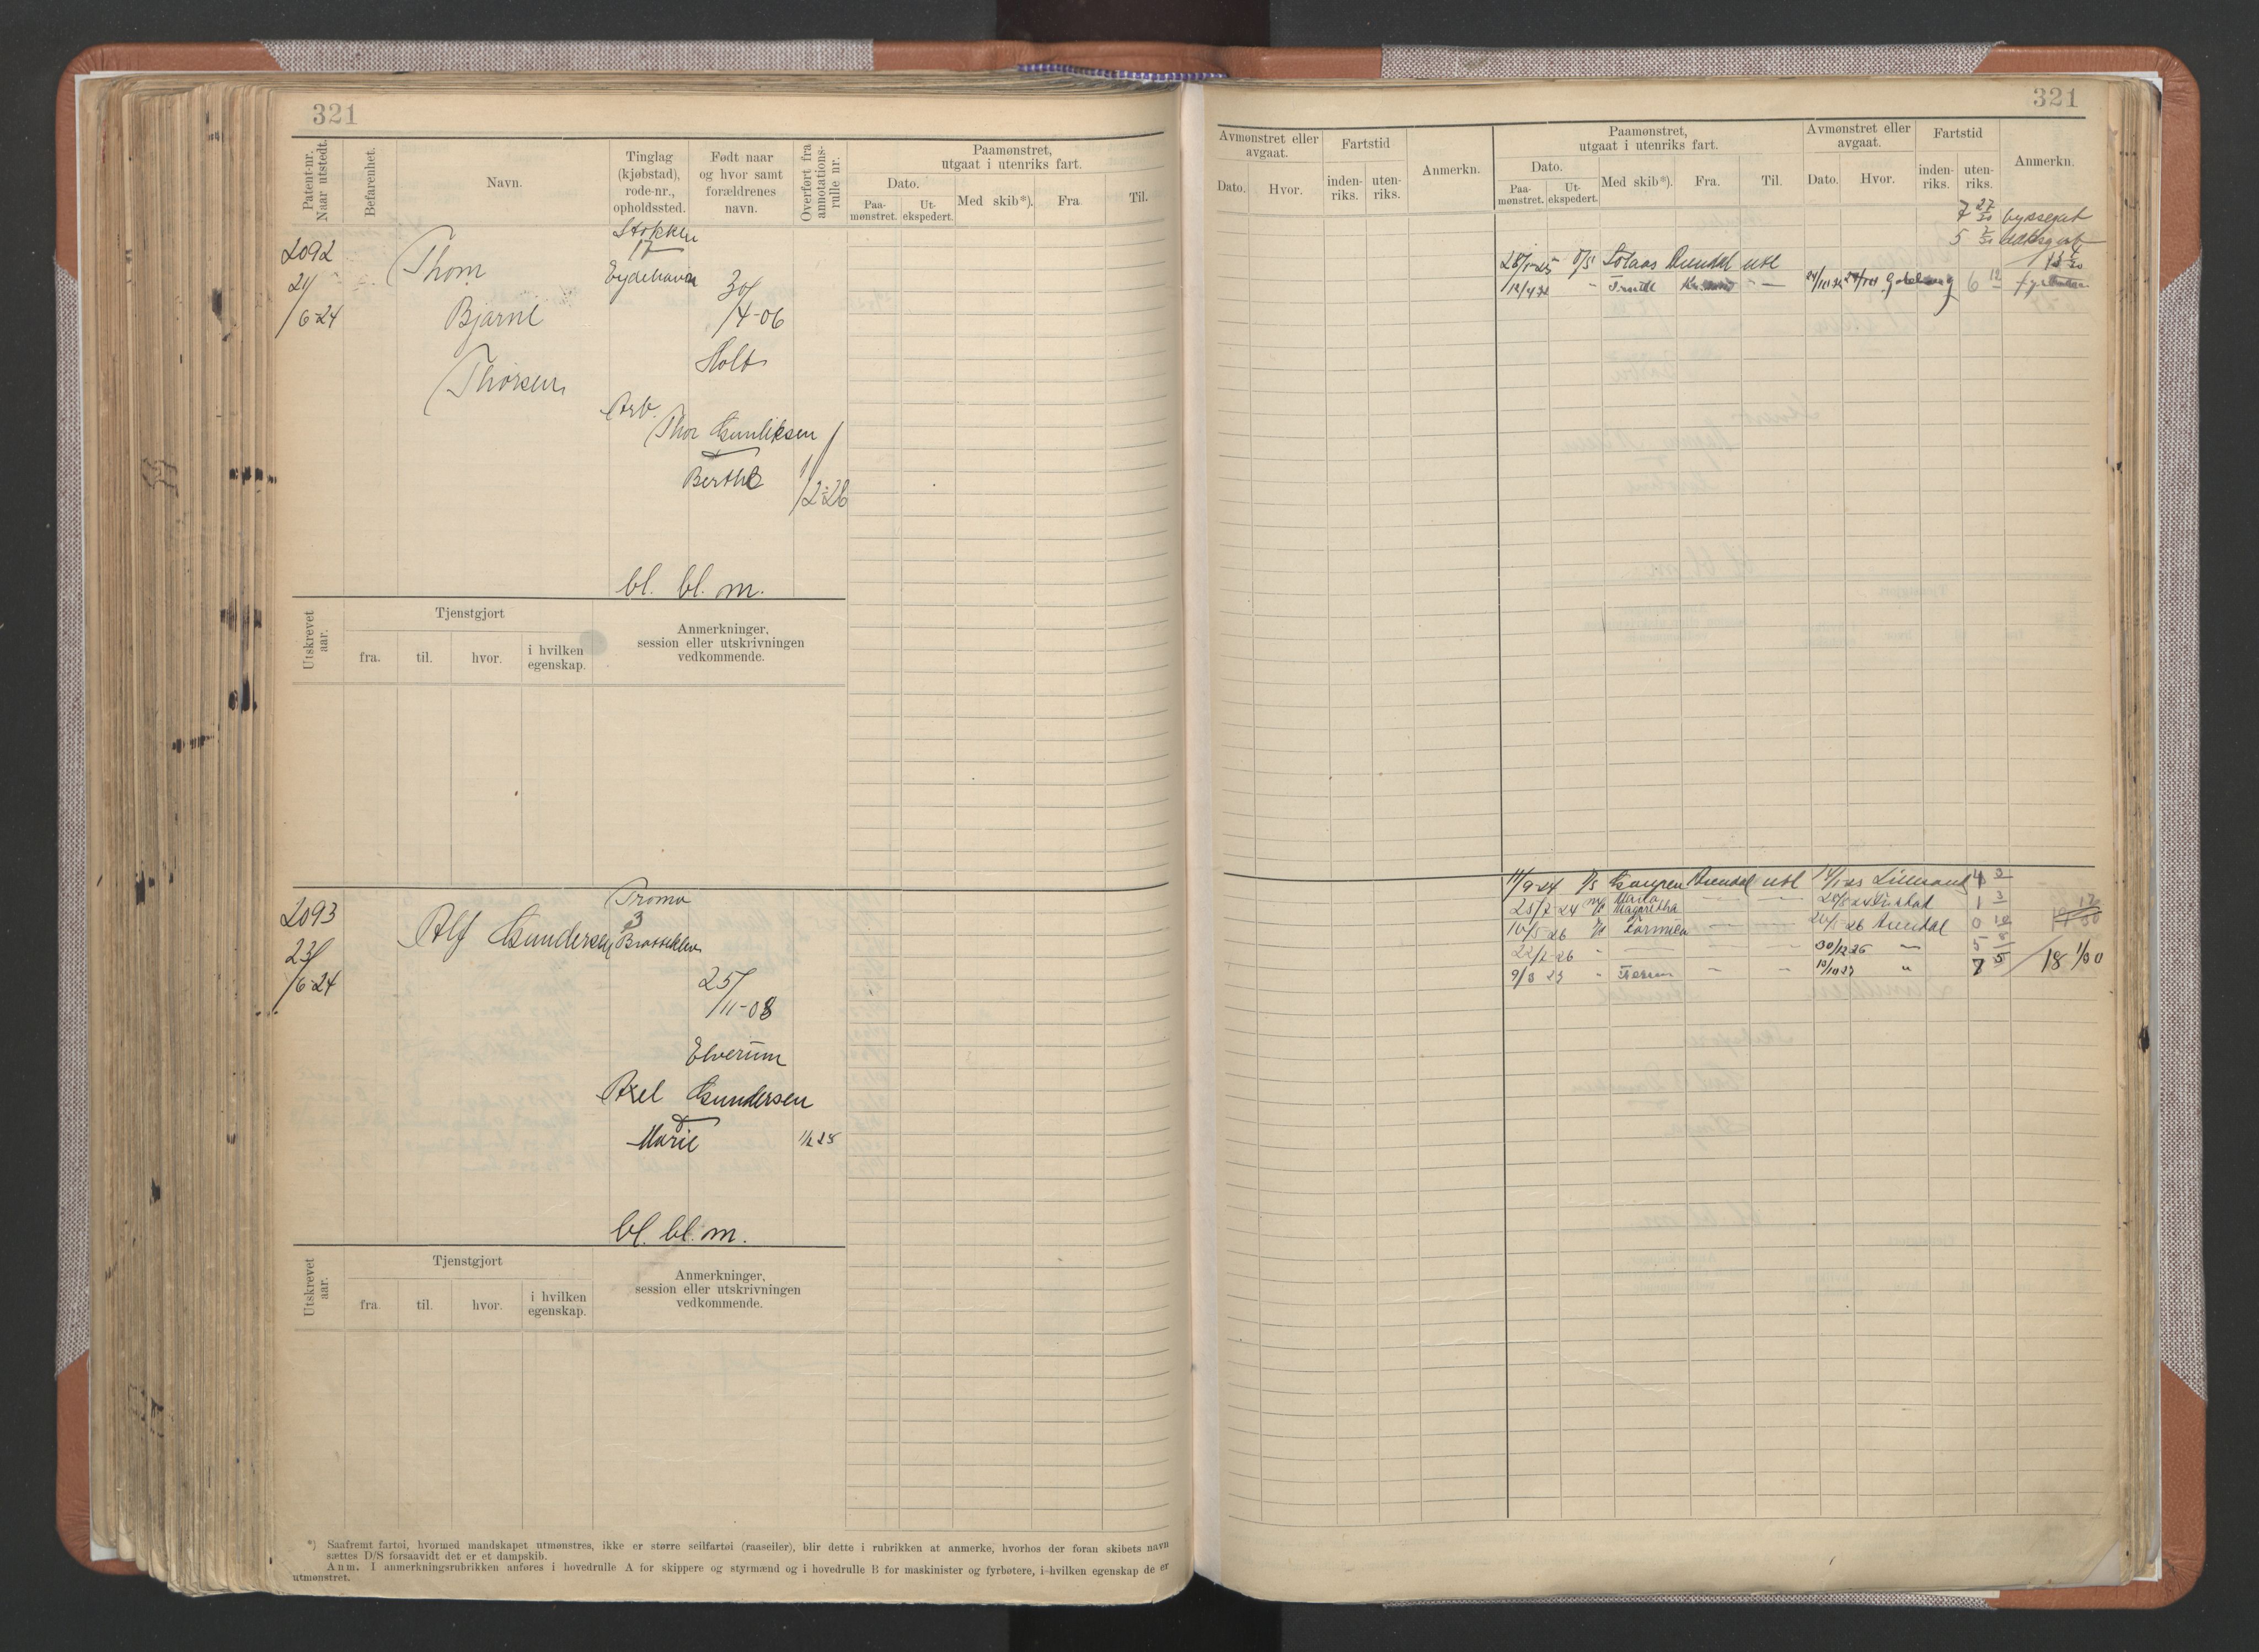 321
Patent-nr. Naar utstedt.
Befarenhet.
Navn.
Tinglag (kjøbstad), rode-nr., opholdssted.
Født naar og hvor samt forældrenes navn.
Overført fra annotations-rulle nr.
Paamønstret, utgaat i utenriks fart.
Dato.
Paa-mønstret.
Ut-ekspedert.
Med skib*).
Fra
Til.
2092
21/6-24
Thom
Bjarne
Thorsen
Stokken
17
Eydehavn
30/4-06
Holt
Arb.
Thor Gunliksen
&
Berthe
1/12-28
bl. bl. m.
Utskrevet aar.
Tjenstgjort
fra.
til.
hvor.
i hvilken egenskap.
Anmerkninger, session eller utskrivningen vedkommende.
2093
23/6-24
Alf Gundersen
Tromø
3
Brattekleiv
25/11-08
Elverum
Axel Gundersen
&
Marie
bl. bl. m.
Utskrevet aar.
Tjenstgjort
fra.
til.
hvor.
i hvilken egenskap.
Anmerkninger, session eller utskrivningen vedkommende.
*) Saafremt fartøi, hvormed mandskapet utmønstres, ikke er større seilfartøi (raaseiler), blir dette i rubrikken at anmerke, hvorhos der foran skibets navn
sættes D/S forsaavidt det er et dampskib.
Anm. I anmerkningsrubrikken anføres i hovedrulle A for skippere og styrmænd og i hovedrulle B for maskinister og fyrbøtere, i hvilken egenskap de er
utmønstret.
321
Avmønstret eller avgaat.
Dato.
Hvor.
Fartstid
inden-riks.
uten-riks.
Anmerkn.
Paamønstret, utgaat i utenriks fart.
Dato.
Paa-mønstret.
Ut-ekspedert.
Med skib*).
Fra.
Til.
Avmønstret eller avgaat.
Dato.
Hvor.
Fartstid
inden-riks.
uten-riks.
Anmerkn.
7 27/30 byssegut
5 7/30 dæksgut
28/1-25 D/S Solaas Arendal utl
6 12
11/9-24 D/S Arendal utl Lillesand 4 3
Margaretha 1 3
10/5 26 20/5-26 Arendal 0 10
22/7-26 30/12 26 5 8
7 5
18 1/30